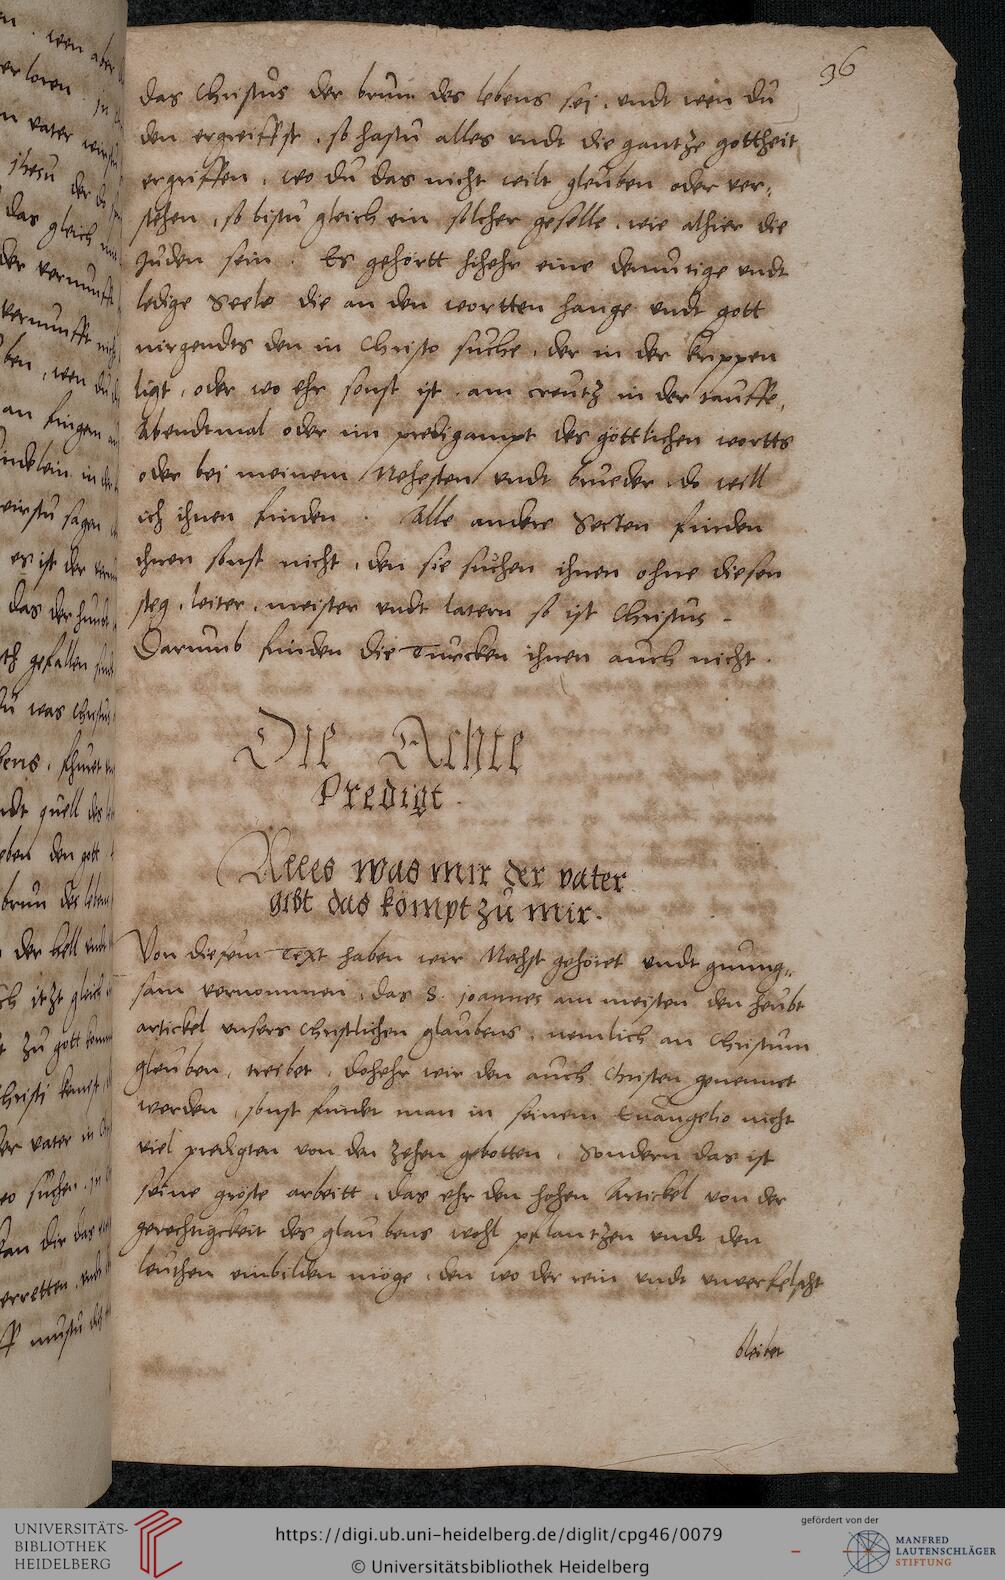 36
das Christus der brun des lebens sei, undt wen du
den ergreiffst, so hastu alles undt die gantze gottheit
ergriffen, wo du das nicht wilt gleuben oder ver-
stehen, so bistu gleich ein solcher geselle, wie alhier die
Juden sein. Es gehörtt hihehr eine demutige undt
ledige Seele die an den wortten hange undt gott
nirgendts den in Christo suche, der in der krippen
ligt, oder wo ehr sonst ist, am creutz in der tauffe,
Abendtmal oder im predigampt des göttlichen wortts
oder bei meinem Nehesten undt brueder, do will
ich ihnen finden. Alle andere Secten finden
ihnen sonst nicht, den sie suchen ihnen ohne diesen
steg, leiter, meister undt latern so ist Christus
Darumb finden die Turcken ihnen auch nicht.
Die Achte
Predigt.
Alles was mir der vater
gibt das kömpt zu mir.
Von diesem Text haben wir Nehst gehöret undt gnung-
sam vernommen, das S. Joannes am meisten den heubt
artickel unsers Christlichen glaubens, nemlich an Christum
gleuben, treibet, dohehr wir den auch Christen genennet
werden, sonst findet man in seinem Euangelio nicht
viel predigten von den zehen gebotten, Sondern das ist
seine gröste arbeitt, das ehr den hohen Artickel von der
gerechtigkeit des glaubens wohl pflantzen undt den
leuthen einbilden möge, den wo der rein undt unverfelscht
bleibet
UNIVERSITÄTS-
BIBLIOTHEK
HEIDELBERG
https://digi.ub.uni-heidelberg.de/diglit/cpg46/0079
© Universitätsbibliothek Heidelberg
gefördert von der
MANFRED
LAUTENSCHLÄGER
STIFTUNG